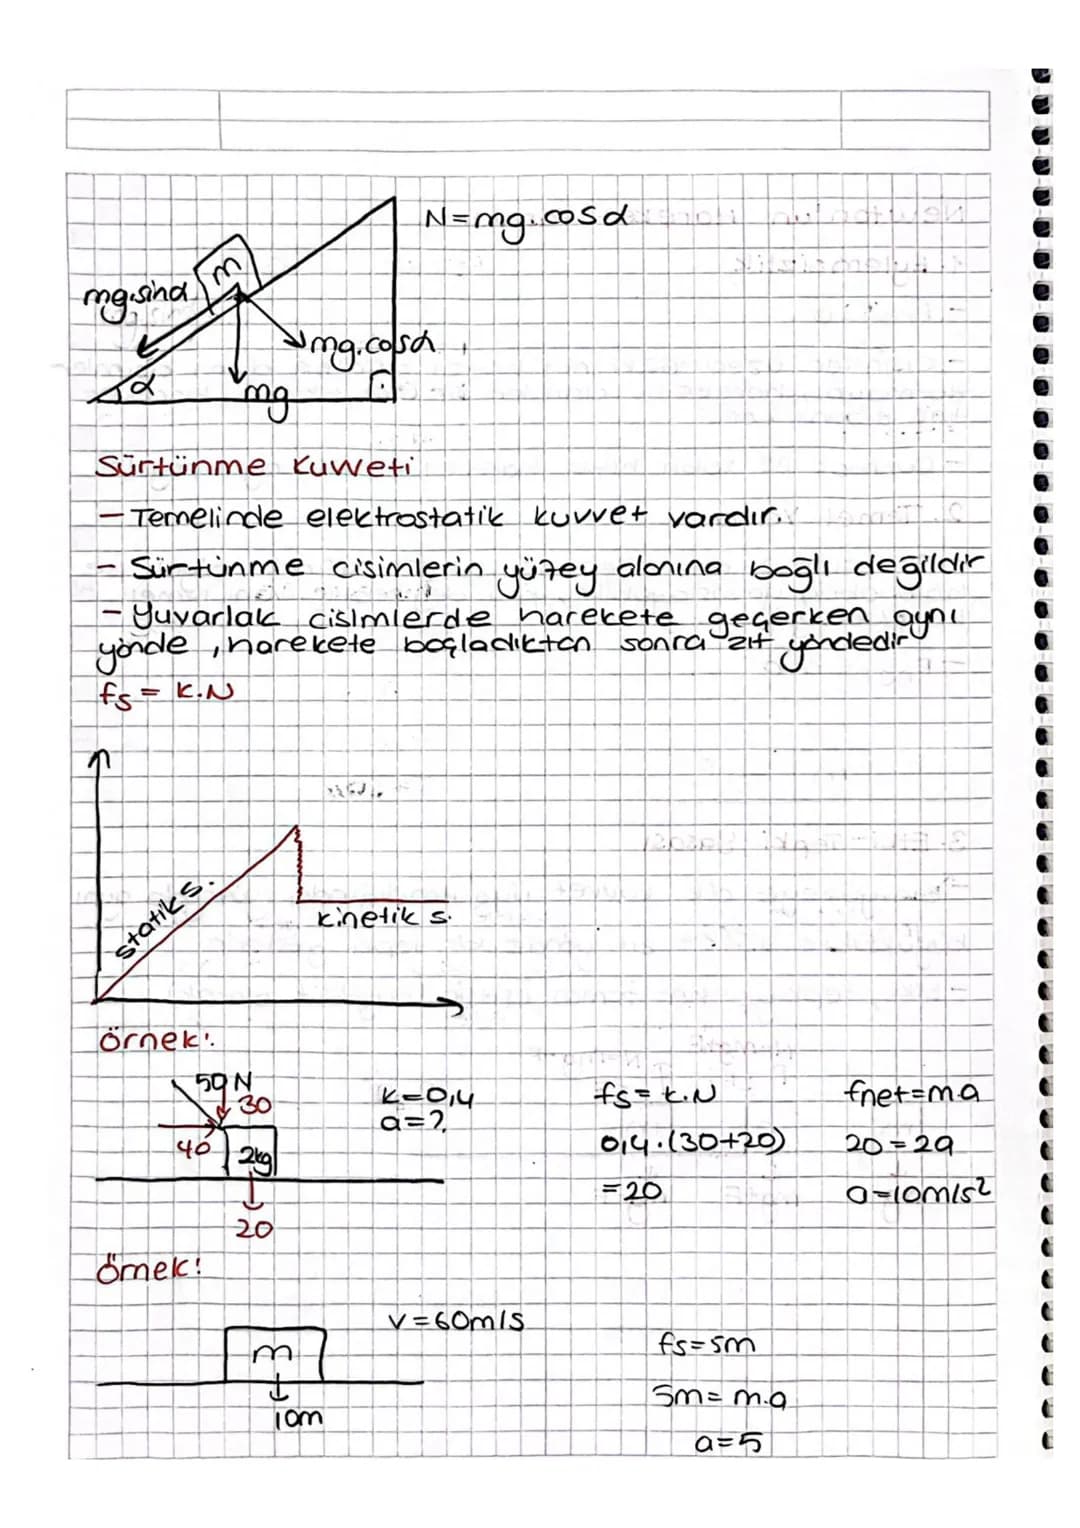 N=mg.cosα
m
mg.sinα
mg.cosα
α
mg
Sürtünme Kuvveti
- Temelinde elektrostatik kuvvet vardır.
- Sürtünme cisimlerin yüzey alanına bağlı değildir
- Yuvarlak cisimlerde harekete geçerken aynı
yönde, harekete başladıktan sonra zıt yöndedir
fs = k.N
statik s.
kinetik s.
Örnek:
50 N
30
40
2kg
20
k=0,4
a=?
fs= k.N
0,4.(30+20)
=20
fnet=m.a
20=2a
a=10m/s²
Örnek:
m
10m
v=60m/s
fs=5m
5m=m.a
a=5